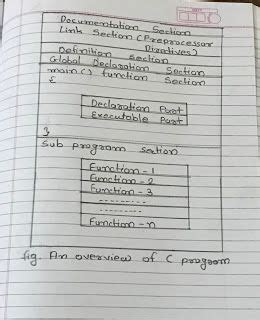 Documentation Section
Link Section (Preprocessor
Diratives)
Definition Section
Global Declaration Section
main() function Section
{
Declaration Part
Executable Part
}
Sub program Section
Function-1
Function-2
Function-3
---------
---------
Function-n
fig. An overview of C program